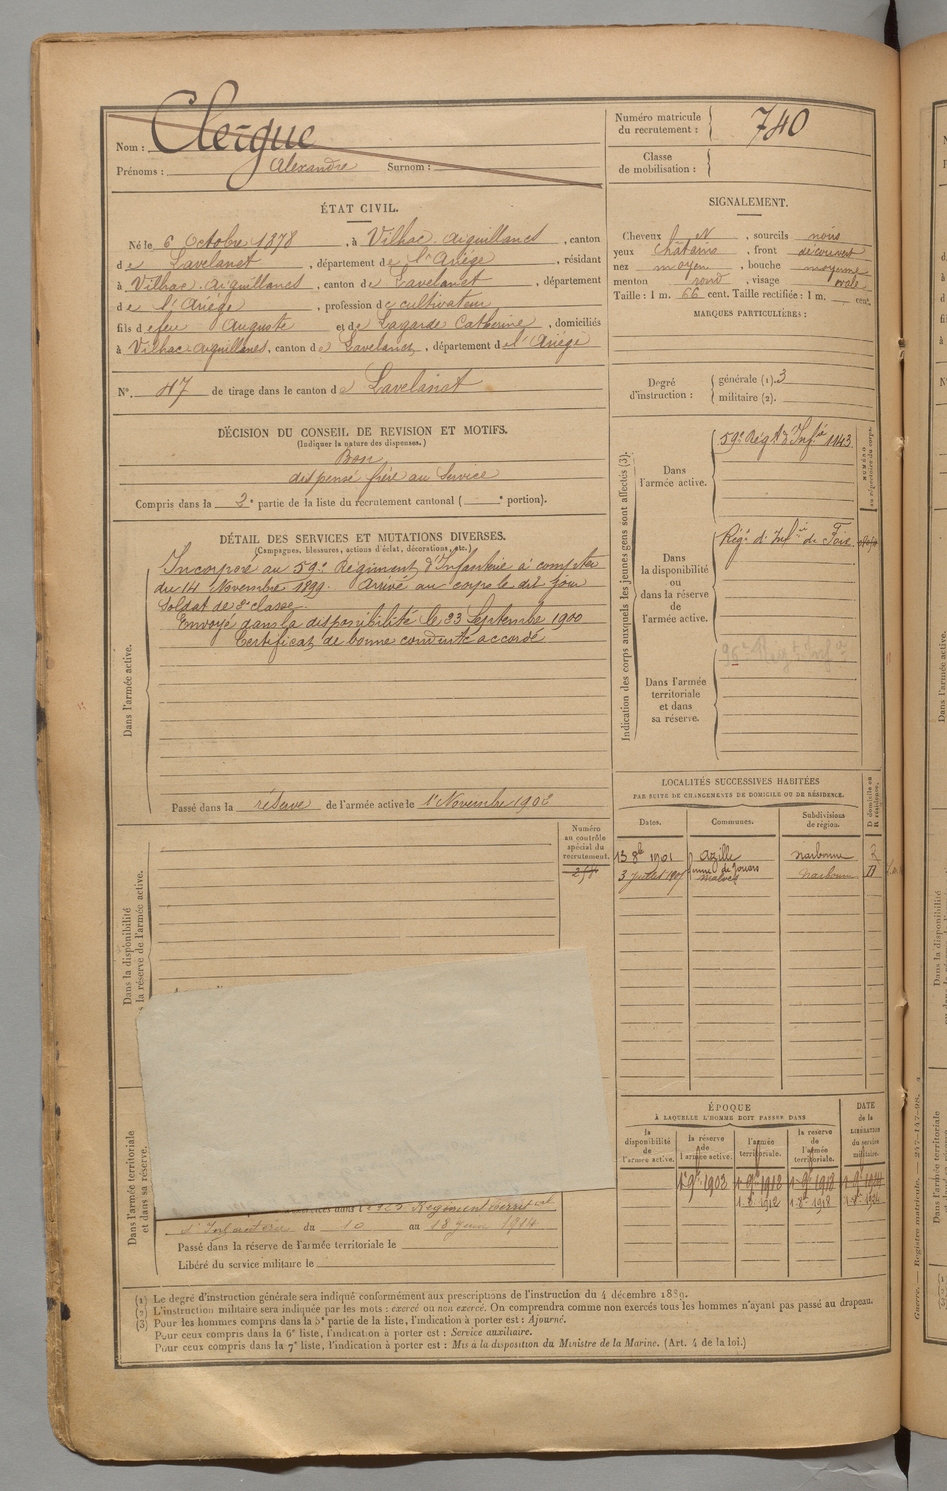 Nom : Clergue
Prénoms : Alexandre Surnom :
Numéro matricule du recrutement : 740
Classe de mobilisation :
ÉTAT CIVIL.
Né le 6 Octobre 1878, à Vilhac-Aiguillanes, canton
de Lavelanet, département de l'Ariège, résidant
à Vilhac-Aiguillanes, canton de Lavelanet, département
de l'Ariège, profession de cultivateur
fils de feu Auguste et de Lagarde Catherine, domiciliés
à Vilhac-Aiguillanes, canton de Lavelanet, département de l'Ariège
N° 47 de tirage dans le canton de Lavelanet
SIGNALEMENT.
Cheveux N, sourcils noirs
yeux châtains, front découvert
nez moyen, bouche moyenne
menton rond, visage ovale
Taille : 1 m. 66 cent. Taille rectifiée : 1 m. cent.
MARQUES PARTICULIÈRES :
Degré d'instruction : générale (1). 3
militaire (2).
DÉCISION DU CONSEIL DE REVISION ET MOTIFS.
(Indiquer la nature des dispenses.)
Bon
dispensé frère au service
Compris dans la 2e partie de la liste du recrutement cantonal ( e portion).
DÉTAIL DES SERVICES ET MUTATIONS DIVERSES.
(Campagnes, blessures, actions d'éclat, décorations, etc.)
Dans l'armée active.
Incorporé au 59e Régiment d'Infanterie à compter
du 14 Novembre 1899. Arrivé au corps le dit jour
Soldat de 2e classe.
Envoyé dans la disponibilité le 23 Septembre 1900
Certificat de bonne conduite accordé
Passé dans la réserve de l'armée active le 1er Novembre 1902
Indication des corps auxquels les jeunes gens sont affectés (3).
NUMÉRO au répertoire du corps.
Dans l'armée active.
59e Régt d'Infie 1143
Dans la disponibilité ou dans la réserve de l'armée active.
Régt d'Infie de Foix
Dans l'armée territoriale et dans sa réserve.
LOCALITÉS SUCCESSIVES HABITÉES
PAR SUITE DE CHANGEMENTS DE DOMICILE OU DE RÉSIDENCE.
Dates. Communes. Subdivisions de région. D domicile ou R résidence.
13 8b 1901 Azille Narbonne R
3 juillet Narbonne D
Dans la disponibilité
la réserve de l'armée active.
Numéro au contrôle spécial du recrutement.
Dans l'armée territoriale et dans sa réserve.
Régiment territ
d'Infanterie du 10 au 18 juin 1914
Passé dans la réserve de l'armée territoriale le
Libéré du service militaire le
ÉPOQUE
À LAQUELLE L'HOMME DOIT PASSER DANS
DATE de la LIBÉRATION du service militaire.
la disponibilité de l'armée active.
la réserve de l'armée active.
l'armée territoriale.
la réserve de l'armée territoriale.
1er 9b 1902 1er 9b 1912 1er 9b 1918 1er 9b 1924
1er 8b 1912 1er 8b 1918 1er 8b 1924
(1) Le degré d'instruction générale sera indiqué conformément aux prescriptions de l'instruction du 4 décembre 1889.
(2) L'instruction militaire sera indiquée par les mots : exercé ou non exercé. On comprendra comme non exercés tous les hommes n'ayant pas passé au drapeau.
(3) Pour les hommes compris dans la 5e partie de la liste, l'indication à porter est : Ajourné.
Pour ceux compris dans la 6e liste, l'indication à porter est : Service auxiliaire.
Pour ceux compris dans la 7e liste, l'indication à porter est : Mis à la disposition du Ministre de la Marine. (Art. 4 de la loi.)